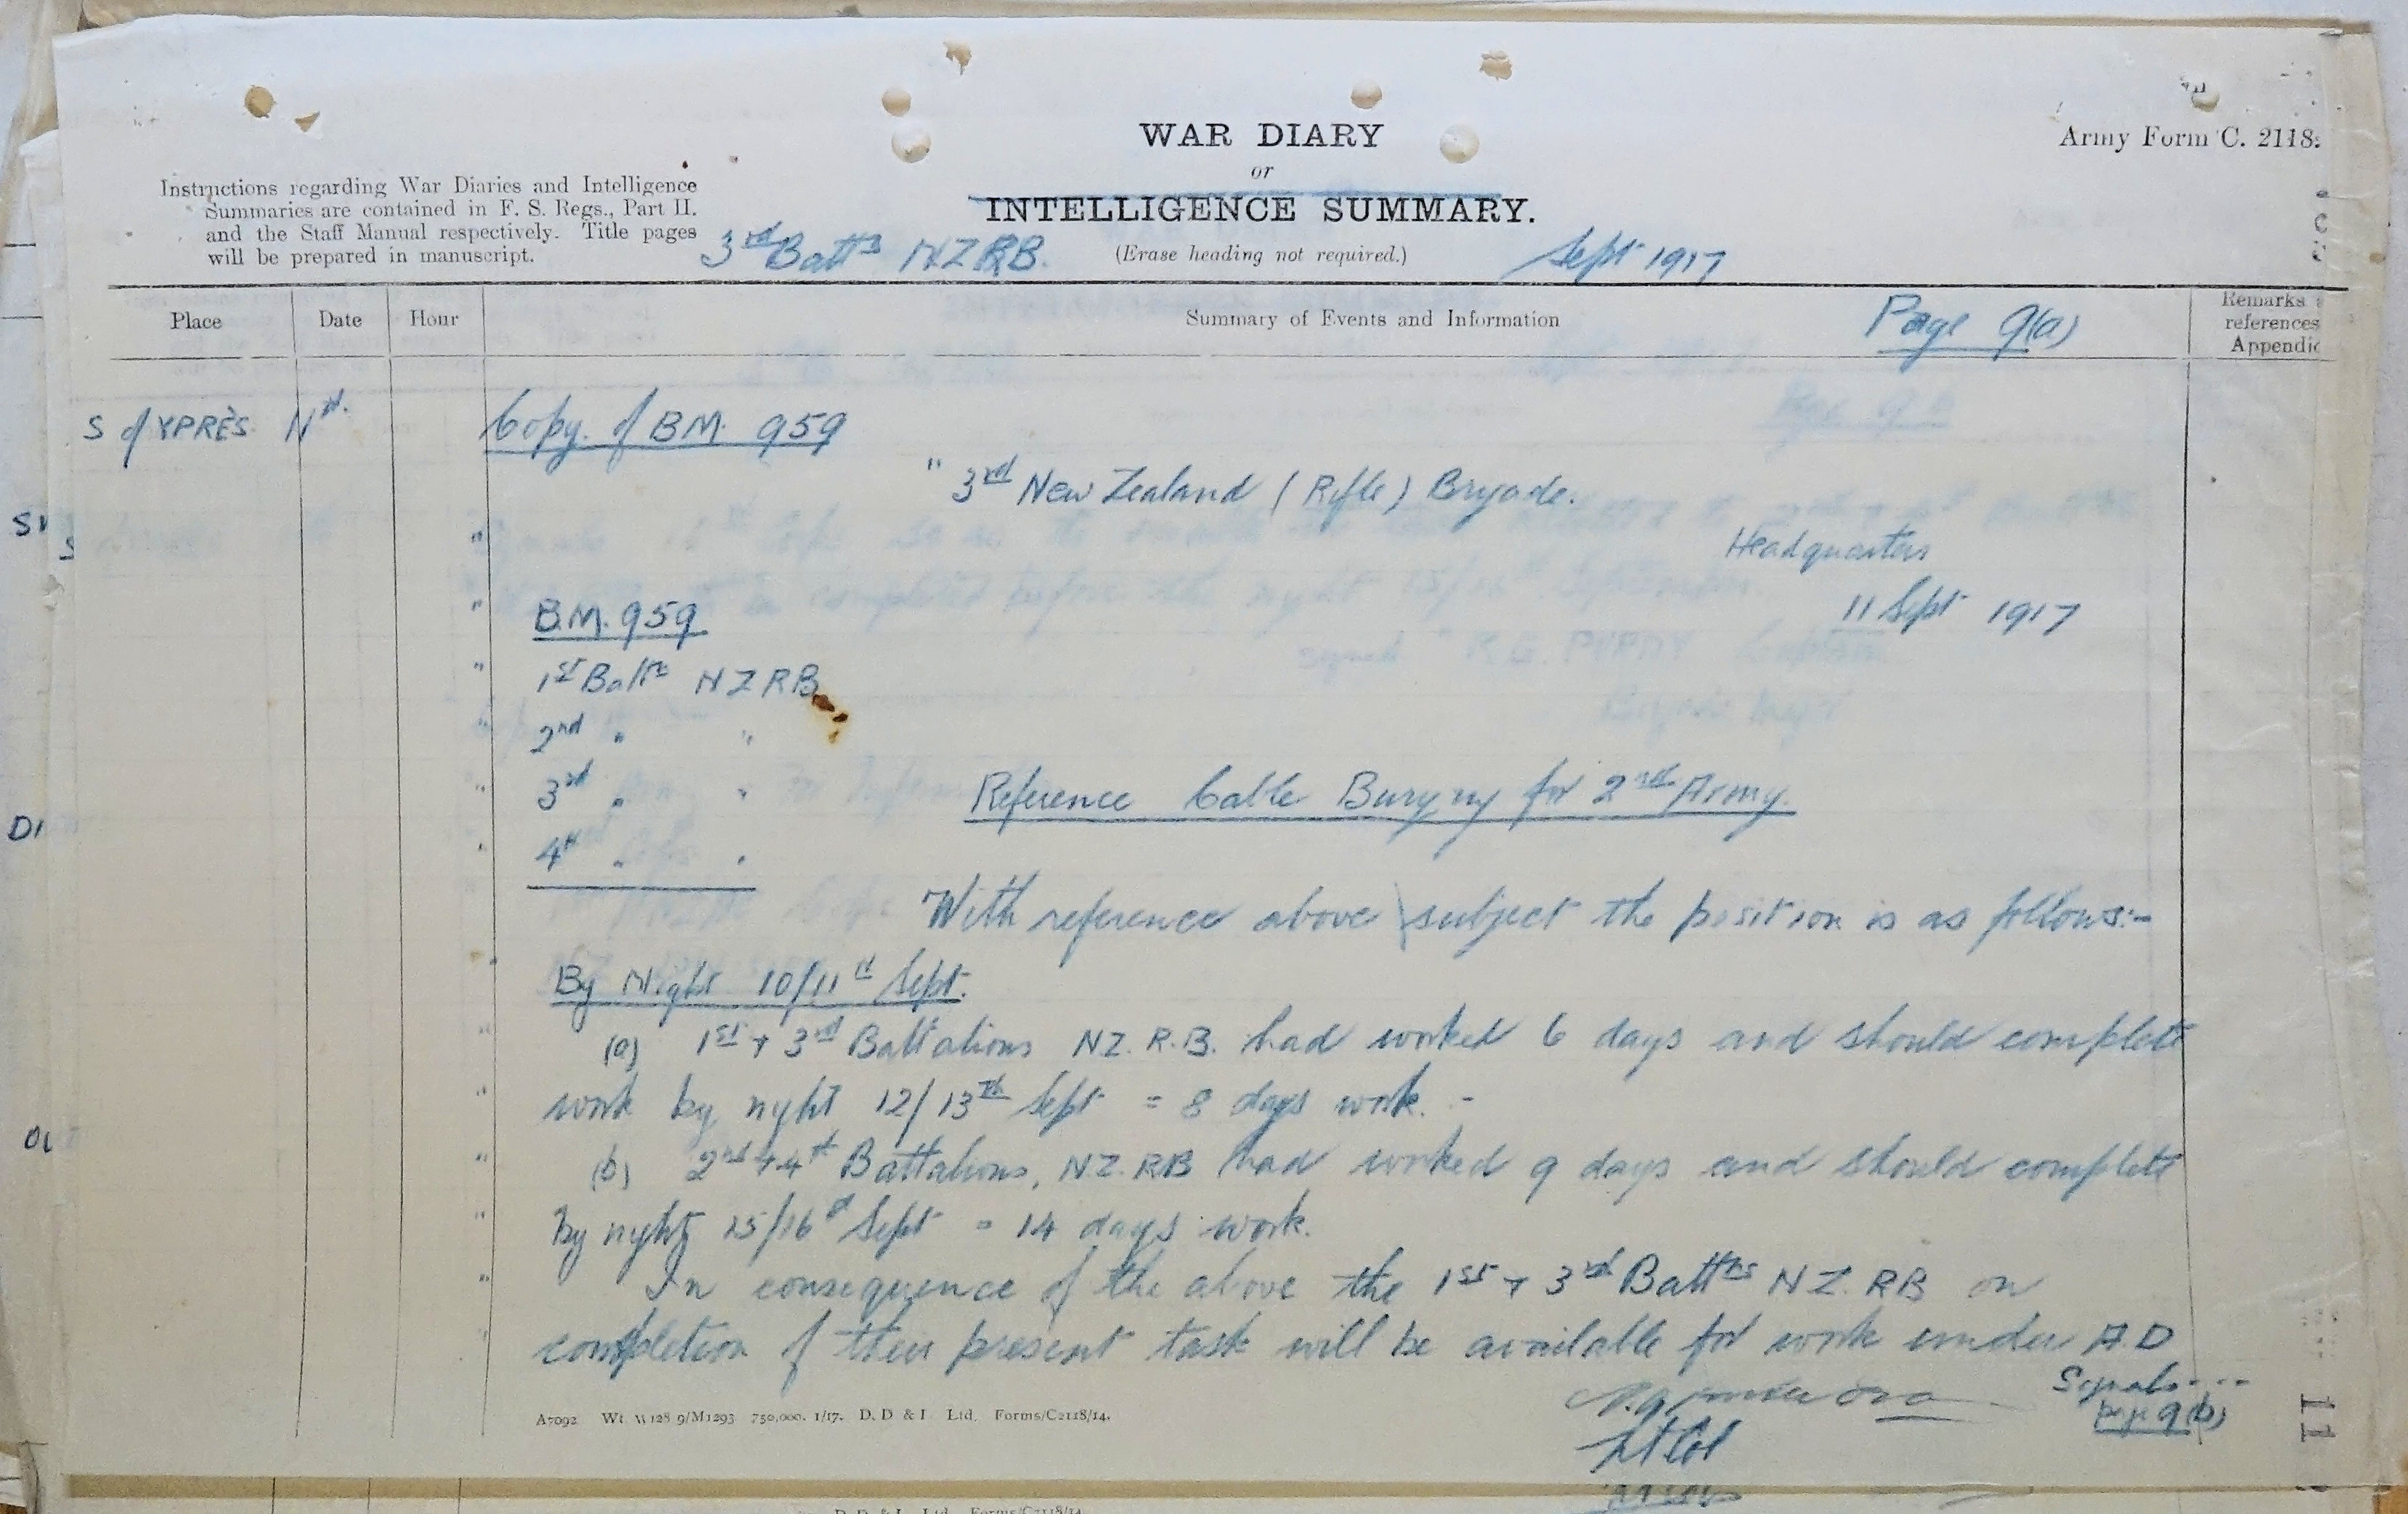 WAR DIARY
or
INTELLIGENCE SUMMARY.
(Erase heading not required.)
Army Form C. 2118.
Instructions regarding War Diaries and Intelligence
Summaries are contained in F. S. Regs., Part II.
and the Staff Manual respectively. Title pages
will be prepared in manuscript.
3rd Battn NZRB.
Sept 1917
Place
Date
Hour
Summary of Events and Information
Page 9(a)
Remarks
references
Appendic
S of YPRÈS.
Copy. of BM. 959
" 3rd New Zealand (Rifle) Brigade.
" Headquarters
" B.M. 959
11 Sept 1917
" 1st Battn NZRB
2nd " "
" 3rd " "
Reference Cable Burying for 2nd Army.
" 4th " "
With reference above subject the position is as follows:-
" By Night 10/11th Sept.
" (a) 1st + 3rd Battalions NZ. R.B. had worked 6 days and should complete
" work by night 12/13th Sept = 8 days work. -
" (b) 2nd + 4th Battalions, N.Z. RB had worked 9 days and should complete
" by night 15/16th Sept = 14 days work.
" In consequence of the above the 1st + 3rd Battns NZ. RB on
" completion of their present task will be available for work under A.D
Signals ....
page 9(b)
Lt Col
A7092 Wt. W128 9/M1293 750,000. 1/17. D. D & I Ltd. Forms/C2118/14.
11
D. D. & I. Ltd. Forms/C2118/14.